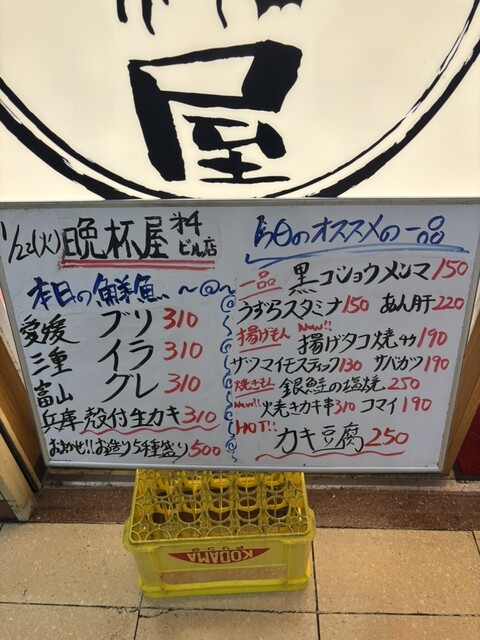 屋
1/22(火) 晩杯屋 オ4ビル店
本日の鮮魚
愛媛 ブリ 310
三重 イラ 310
富山 グレ 310
兵庫 殻付生カキ 310
おまかせ!!お造り5種盛り 500
本日のオススメの一品
一品 黒コショウメンマ 150
うずらスタミナ 150 あん肝 220
揚げもん New!! 揚げタコ焼 190
サツマイモスティック 130 サバカツ 190
焼きもん 銀鮭の塩焼 250
New!! 焼きカキ串 310 コマイ 190
HOT!! カキ豆腐 250
KODAMA